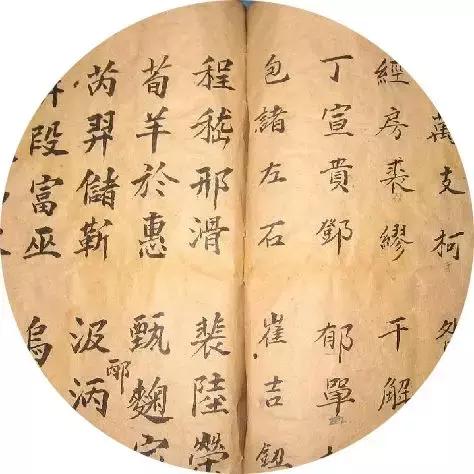 萬支柯
經房裘繆 干解
丁宣賁鄧 郁單
包諸左石 崔吉鈕
程嵇邢滑 裴陸榮
荀羊於惠 甄麴
芮羿儲靳 汲炳
段富巫 烏